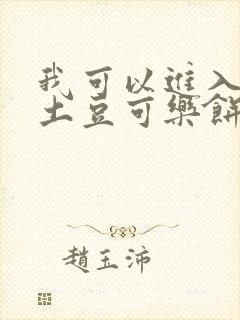 我可以進入
土豆可樂餅
趙玉沛